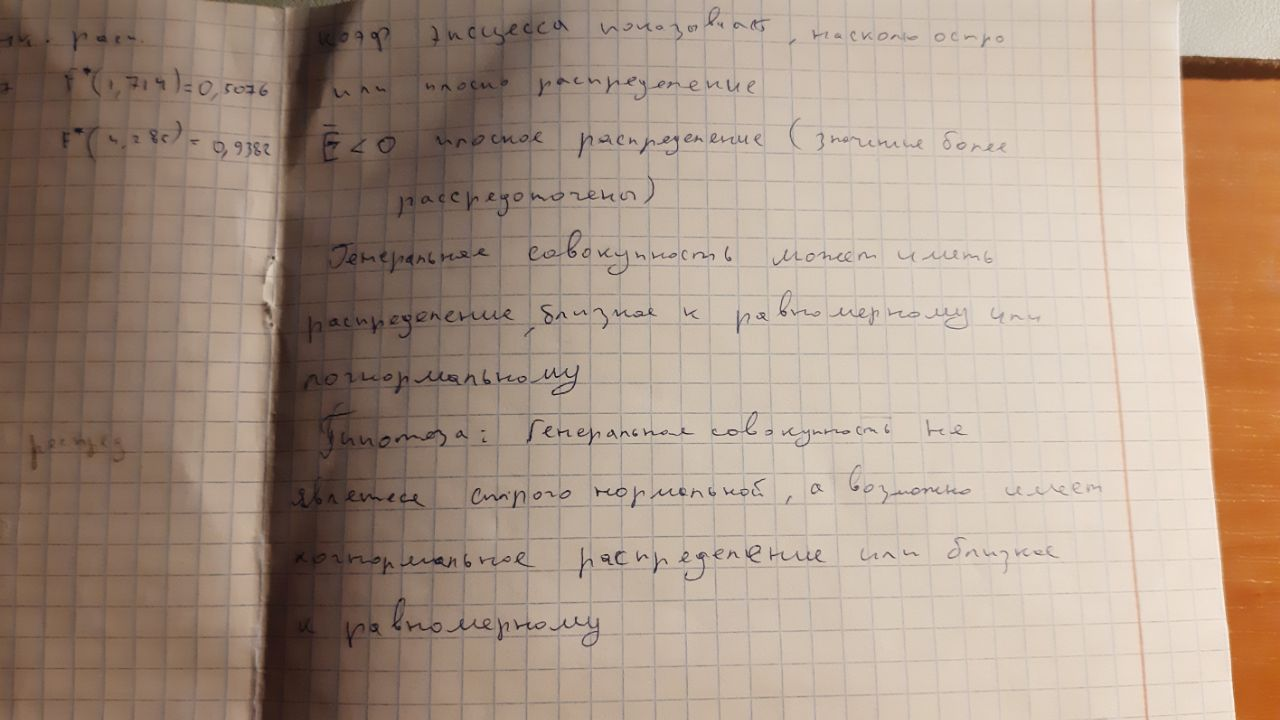 расп.
F*(1,714)=0,5076
F*(4,286)=0,9382
распред
коэф эксцесса показывает, насколько остро
или плоско распределение
E̅ < 0 плоское распределение (значения более
рассредоточены)
Генеральная совокупность может иметь
распределение, близкое к равномерному или
логнормальному
Гипотеза: Генеральная совокупность не
является строго нормальной, а возможно имеет
логнормальное распределение или близкое
к равномерному